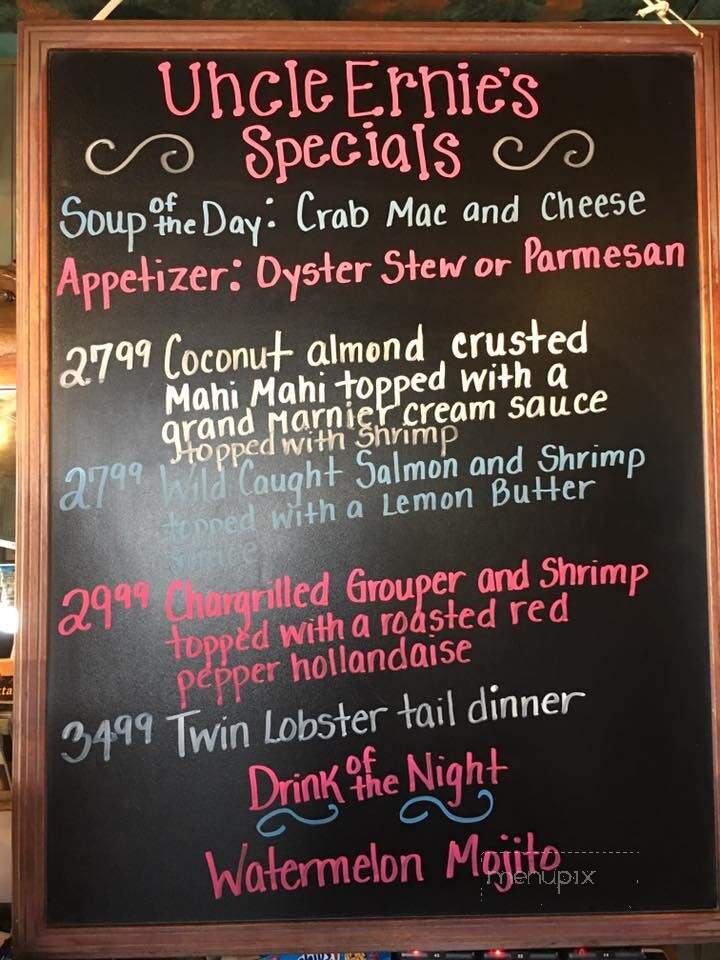 Uncle Ernie's
Specials
Soup of the Day: Crab Mac and Cheese
Appetizer: Oyster Stew or Parmesan
27 99 Coconut almond crusted
Mahi Mahi topped with a
grand Marnier cream sauce
topped with Shrimp
27 99 Wild Caught Salmon and Shrimp
topped with a Lemon Butter
sauce
29 99 Chargrilled Grouper and Shrimp
topped with a roasted red
pepper hollandaise
34 99 Twin Lobster tail dinner
Drink of the Night
Watermelon Mojito
menupix